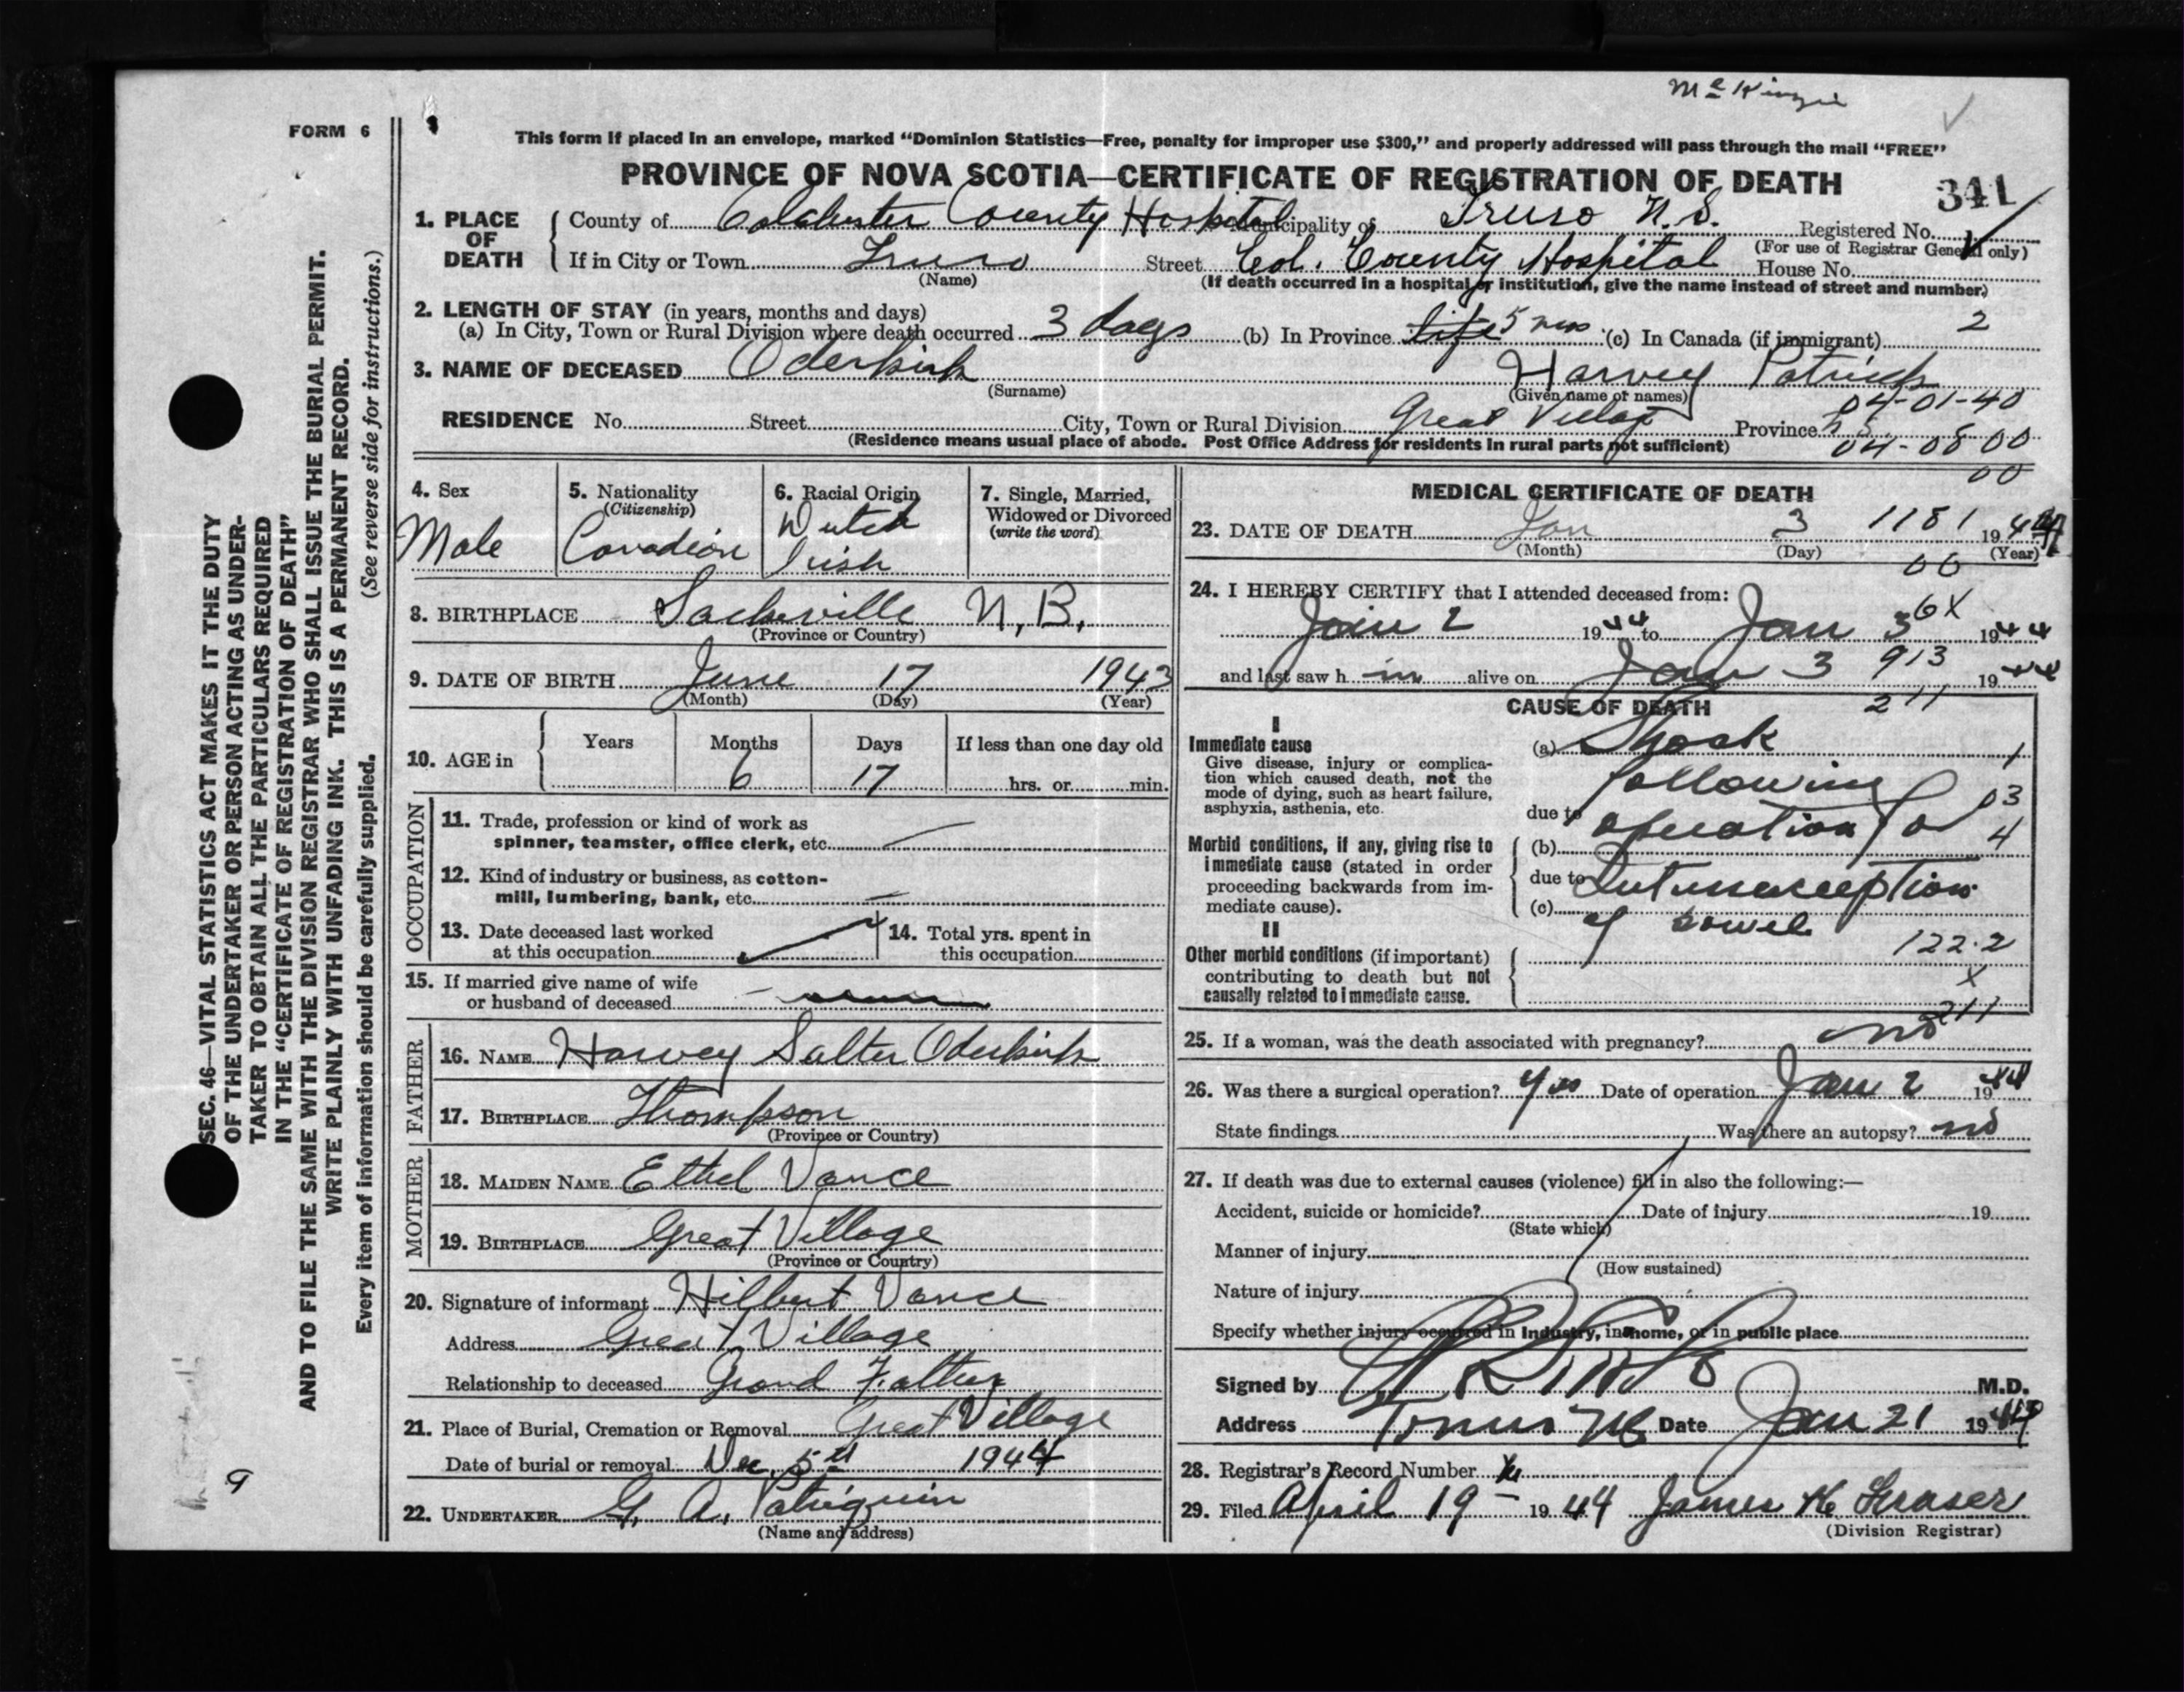 McKinzie
FORM 6
This form if placed in an envelope, marked “Dominion Statistics—Free, penalty for improper use $300,” and properly addressed will pass through the mail “FREE”
PROVINCE OF NOVA SCOTIA—CERTIFICATE OF REGISTRATION OF DEATH
341
1. PLACE OF DEATH County of Colchester County Hospital Municipality of Truro N.S. Registered No.
(For use of Registrar General only)
If in City or Town Truro Street Col. County Hospital House No.
(Name) (If death occurred in a hospital or institution, give the name instead of street and number)
2. LENGTH OF STAY (in years, months and days)
(a) In City, Town or Rural Division where death occurred 3 days (b) In Province life 5 mos (c) In Canada (if immigrant) 2
3. NAME OF DECEASED Oderkirk Harvey Patrick
(Surname) (Given name or names)
04-01-40
RESIDENCE No. Street City, Town or Rural Division Great Village Province N.S.
(Residence means usual place of abode. Post Office Address for residents in rural parts not sufficient)
04-08-00
00
4. Sex Male
5. Nationality (Citizenship) Canadian
6. Racial Origin Dutch Irish
7. Single, Married, Widowed or Divorced (write the word)
8. BIRTHPLACE Sackville N.B.
(Province or Country)
9. DATE OF BIRTH June 17 1943
(Month) (Day) (Year)
10. AGE in Years Months Days If less than one day old
6 17 hrs. or min.
OCCUPATION
11. Trade, profession or kind of work as
spinner, teamster, office clerk, etc.
12. Kind of industry or business, as cotton-
mill, lumbering, bank, etc.
13. Date deceased last worked
at this occupation
14. Total yrs. spent in
this occupation
15. If married give name of wife
or husband of deceased
FATHER
16. NAME Harvey Salter Oderkirk
17. BIRTHPLACE Thompson
(Province or Country)
MOTHER
18. MAIDEN NAME Ethel Vance
19. BIRTHPLACE Great Village
(Province or Country)
20. Signature of informant Hilbert Vance
Address Great Village
Relationship to deceased Grand Father
21. Place of Burial, Cremation or Removal Great Village
Date of burial or removal Dec. 5th 1944
22. UNDERTAKER G. A. Patriquin
(Name and address)
MEDICAL CERTIFICATE OF DEATH
23. DATE OF DEATH Jan 3 1181 1944
(Month) (Day) (Year)
06
24. I HEREBY CERTIFY that I attended deceased from:
6X
Jan 2 1944 to Jan 3 1944
and last saw h im alive on Jan 3 913 1944
CAUSE OF DEATH 211
I
Immediate cause
Give disease, injury or complica-
tion which caused death, not the
mode of dying, such as heart failure,
asphyxia, asthenia, etc.
(a) Shock 1
following
due to operation for
03
4
Morbid conditions, if any, giving rise to
immediate cause (stated in order
proceeding backwards from im-
mediate cause).
(b)
due to Intussusception
(c) of bowel
II
Other morbid conditions (if important)
contributing to death but not
causally related to immediate cause.
122.2
X
211
25. If a woman, was the death associated with pregnancy? no
26. Was there a surgical operation? yes Date of operation Jan 2 1944
State findings Was there an autopsy? no
27. If death was due to external causes (violence) fill in also the following:—
Accident, suicide or homicide? Date of injury 19
(State which)
Manner of injury
(How sustained)
Nature of injury
Specify whether injury occurred in Industry, in home, or in public place
Signed by M.D.
Address Truro NS Date Jan 21 1944
28. Registrar's Record Number
29. Filed April 19 1944 James K Fraser
(Division Registrar)
SEC. 46—VITAL STATISTICS ACT MAKES IT THE DUTY
OF THE UNDERTAKER OR PERSON ACTING AS UNDER-
TAKER TO OBTAIN ALL THE PARTICULARS REQUIRED
IN THE “CERTIFICATE OF REGISTRATION OF DEATH”
AND TO FILE THE SAME WITH THE DIVISION REGISTRAR WHO SHALL ISSUE THE BURIAL PERMIT.
WRITE PLAINLY WITH UNFADING INK. THIS IS A PERMANENT RECORD.
Every item of information should be carefully supplied. (See reverse side for instructions.)
9